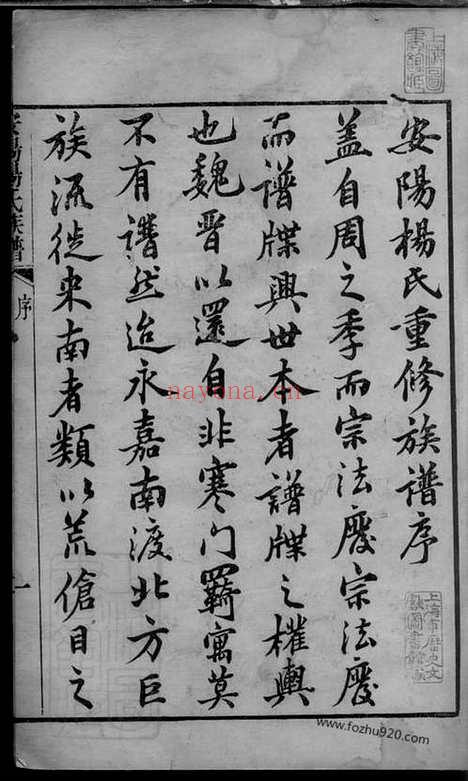 安陽楊氏重修族譜序
蓋自周之季而宗法廢宗法廢
而譜牒興世本者譜牒之權輿
也魏晉以還自非寒门羈寓莫
不有譜然迨永嘉南渡北方巨
族流徙来南者類以荒傖目之
安陽楊氏族譜
序
一
nayona.cn
www.fozhu920.com